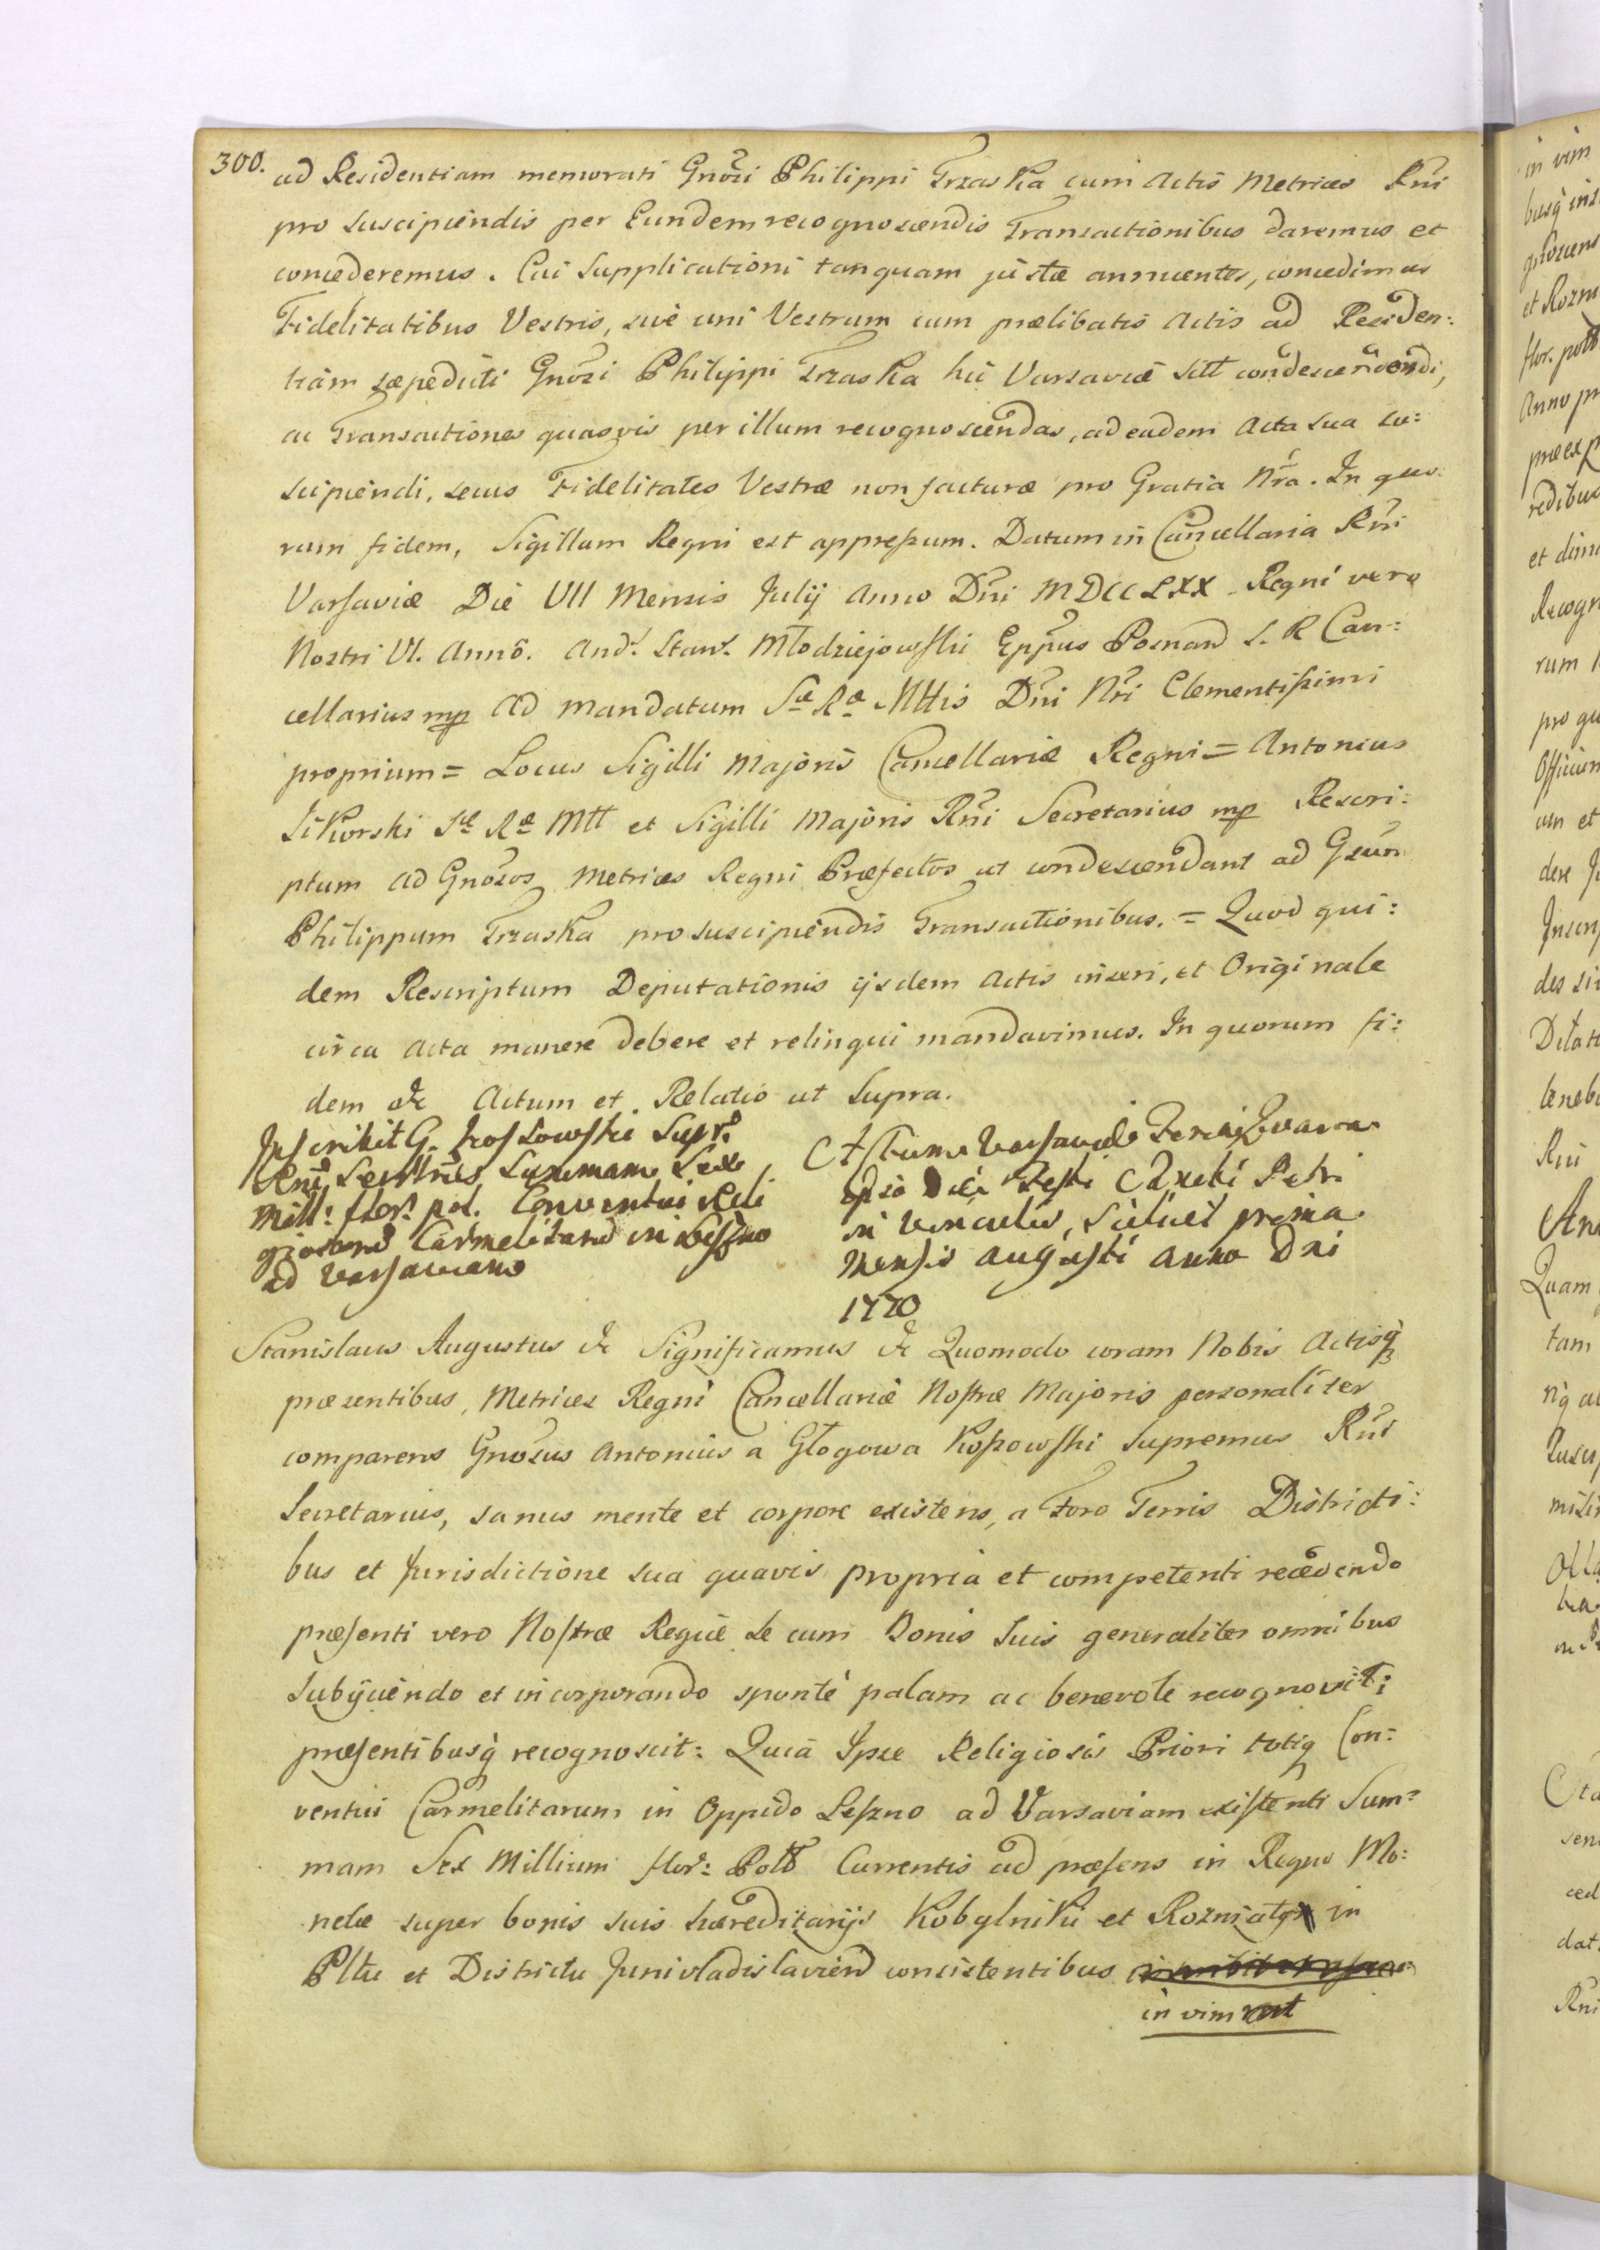 300.
ad Residentiam memorati Gnosi Philippi Trzaska cum Actis Metrices Rni
pro suscipiendis per Eundem recognoscendis Transactionibus daremus et
concederemus. Cui Supplicationi tanquam justæ annuentes, concedimus
Fidelitatibus Vestris, sive uni Vestrum cum prælibatis Actis ad Residen:
tiam sæpedicti Gnosi Philippi Trzaska hic Varsaviæ sitt condescendendi,
ac Transactiones quasvis per illum recognoscendas, ad eadem Acta sua su:
scipiendi, secus Fidelitates Vestræ non facturæ pro Gratia Nra. In quo
rum fidem, Sigillum Regni est appreßum. Datum in Cancellaria Rni
Varsaviæ Die VII Mensis Julij Anno Dni MDCCLXX Regni vero
Nostri VI. Anno. And. Stan. Młodziejowski Eppus Posnan S. R Can:
cellarius mp Ad Mandatum Sæ Ræ Mttis Dni Nri Clementißimi
proprium = Locus Sigilli Majoris Cancellariæ Regni = Antonius
Sikorski Sæ Ræ Mtt et Sigilli Majoris Rni Secretarius mp Rescri:
ptum ad Gnosos Metrices Regni Præfectos ut condescendant ad Gsum
Philippum Trzaska pro suscipiendis Transactionibus. = Quod qui:
dem Rescriptum Deputationis ijsdem Actis inseri, et Originale
circa Acta manere debere et relinqui mandavimus. In quorum fi:
dem &c Actum et Relatio ut Supra.
Inscribit G. Koszowski Supr.
Rni Secretrius Summam Sex
Mill: flor: pol. Conventui Reli
giosorum Carmelitarum in Leszno
ad Varsaviam
Actum Varsaviæ Feria Quarta
ipso Die Festi Sancti Petri
in Vinculis, scilicet prima
Mensis Augusti Anno Dni
1770
Stanislaus Augustus &c Significamus &c Quomodo coram Nobis Actisq
præsentibus, Metrices Regni Cancellariæ Nostræ Majoris personaliter
comparens Gnosus Antonius a Głogowa Koszowski Supremus Rni
Secretarius, sanus mente et corpore existens, a Foro Terris Districti:
bus et Jurisdictione sua quavis propria et competenti recedendo
præsenti vero Nostræ Regiæ se cum Bonis Suis generaliter omnibus
Subijciendo et incorporando sponte palam ac benevole recognovit;
præsentibusq recognoscit: Quia Ipse Religiosis Priori totiq Con:
ventui Carmelitarum in Oppido Leszno ad Varsaviam existenti Sum:
mam Sex Millium flor: Poll Currentis ad præsens in Regno Mo:
netæ super bonis suis hæreditarijs Kobylniki et Rozniaty in
Pltu et Districtu Junivladislavien consistentibus
in vim